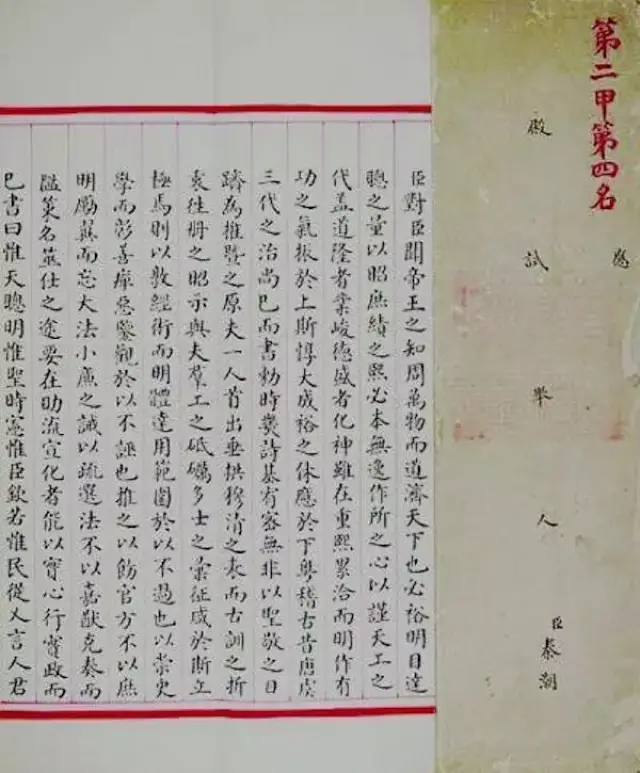 第二甲第四名
應
殿試舉人
臣秦潮
臣對臣聞帝王之知周萬物而道濟天下也必裕明目達
聰之量以昭庶績之熙必本無逸作所之心以謹天工之
代蓋道隆者業峻德盛者化神雖在重熙累洽而明作有
功之氣振於上斯惇大成裕之休應於下粵稽古昔唐虞
三代之治尚已而書勅時幾詩基宥密無非以聖敬之日
躋為推暨之原夫一人首出垂拱穆清之表而古訓之折
衷往冊之昭示與夫羣工之砥礪多士之彙征咸於斯立
極焉則以敦經術而明體達用範圍於以不過也以崇史
學而彰善癉惡鑒觀於以不誣也推之以飭官方不以庶
明勵翼而忘大法小廉之誡以疏選法不以嘉猷克奏而
濫策名筮仕之途要在助流宣化者能以實心行實政而
已書曰惟天聰明惟聖時憲惟臣欽若惟民從乂言人君